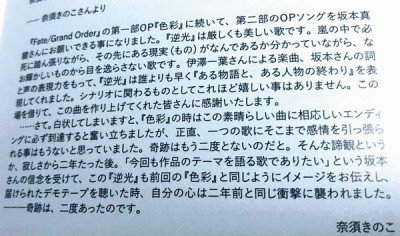 奈須きのこさんより
『Fate/Grand Order』の第一部OP『色彩』に続いて、第二部のOPソングを坂本真
綾さんにお願いできる事になりました。『逆光』は厳しくも美しい歌です。嵐の中で必
死に踏ん張りながら、その先にある現実（もの）がなんであるか分かっていながら、な
お輝かしいものから目を逸らさない歌です。伊澤一葉さんによる楽曲、坂本さんの詞
と声の表現力をもって、『逆光』は誰よりも早く『ある物語と、ある人物の終わり』を表
現してくれました。シナリオに関わるものとしてこれほど嬉しい事はありません。この
場を借りて、この曲を作り上げてくれた皆さんに感謝いたします。
――さて。白状してしまいますと、『色彩』の時はこの素晴らしい曲に相応しいエンディ
ングに必ず到達すると奮い立ちましたが、正直、一つの歌にそこまで感情を引っ張ら
れる事はもうないと思っていました。奇跡はもう二度とないのだと。そんな諦観という
か、寂しさから二年たった後。「今回も作品のテーマを語る歌でありたい」という坂本
さんの信念を受けて、この『逆光』も前回の『色彩』と同じようにイメージをお伝えし、
届けられたデモテープを聴いた時、自分の心は二年前と同じ衝撃に襲われました。
――奇跡は、二度あったのです。
奈須きのこ